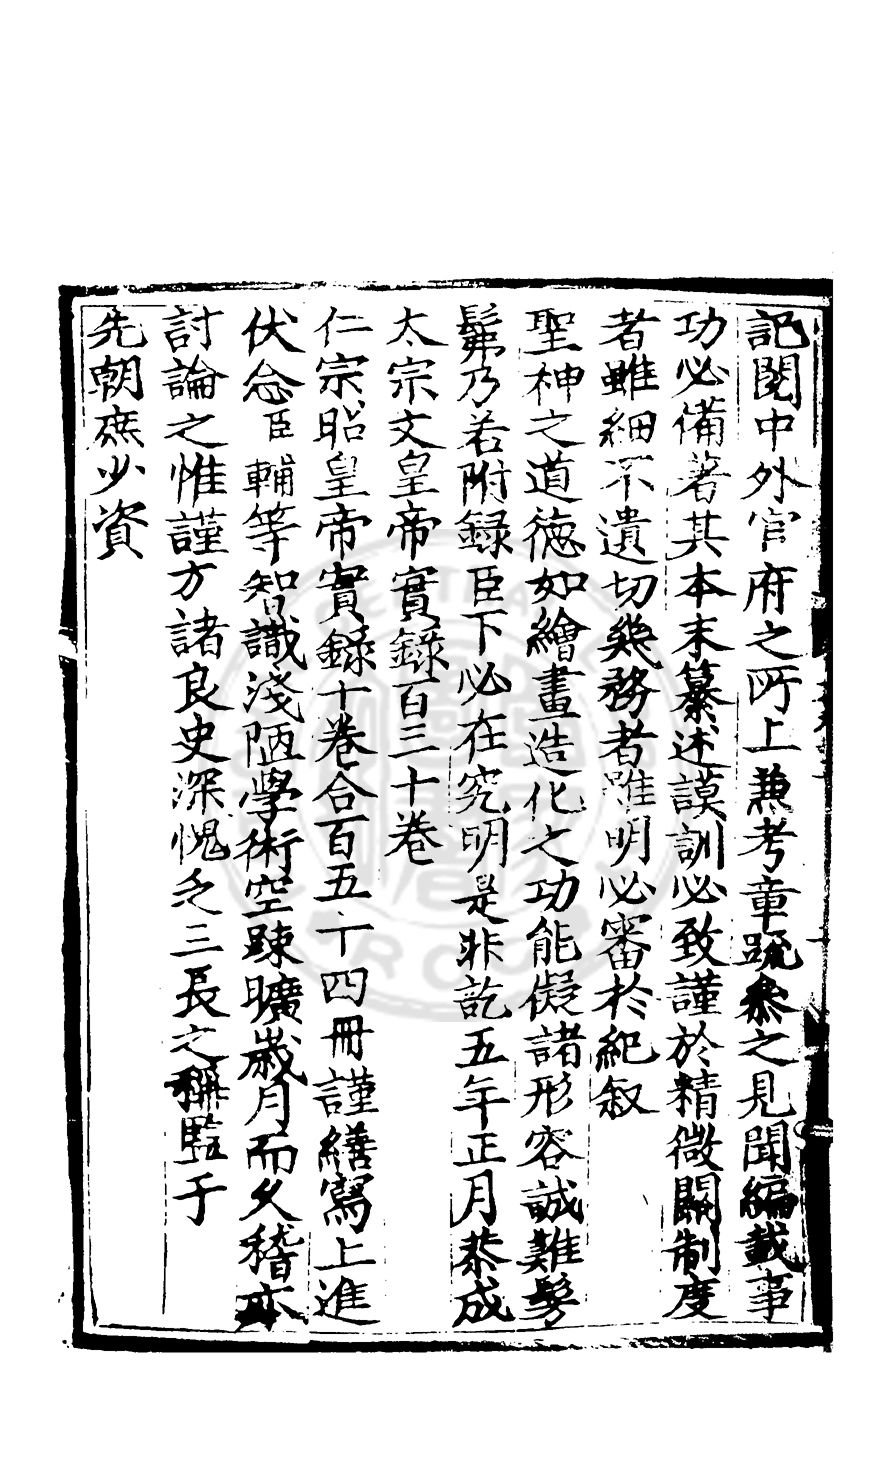 記閱中外官府之所上兼考章疏叅之見聞編載事
功必備著其本末纂述謨訓必致謹於精微關制度
者雖細不遺切幾務者雖明必審於紀叙
聖神之道德如繪畫造化之功能儗諸形容誠難髣
髴乃若附録臣下必在究明是非訖五年正月恭成
太宗文皇帝實録百三十卷
仁宗昭皇帝實録十卷合百五十四冊謹繕寫上進
伏念臣輔等智識淺陋學術空踈曠歲月而久稽亦
討論之惟謹方諸良史深愧乏三長之稱監于
先朝庶少資